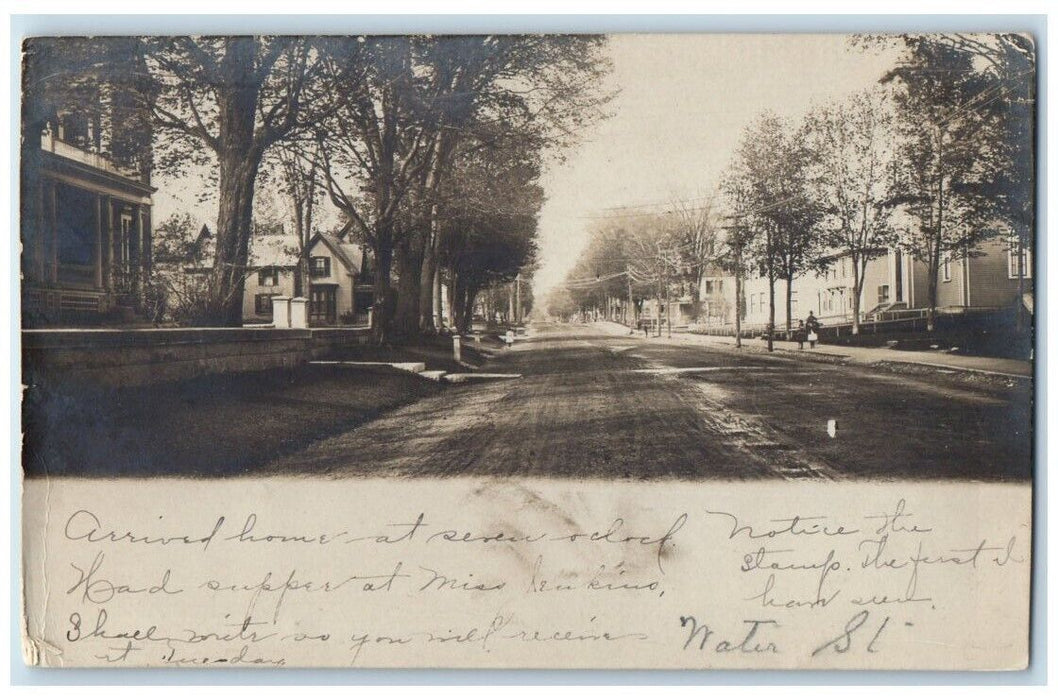 Arrived home at seven oclock
Had supper at Miss Jenkins,
Shall write so you will receive
it Tuesday
Notice the
stamp. The first I
have seen.
Water St